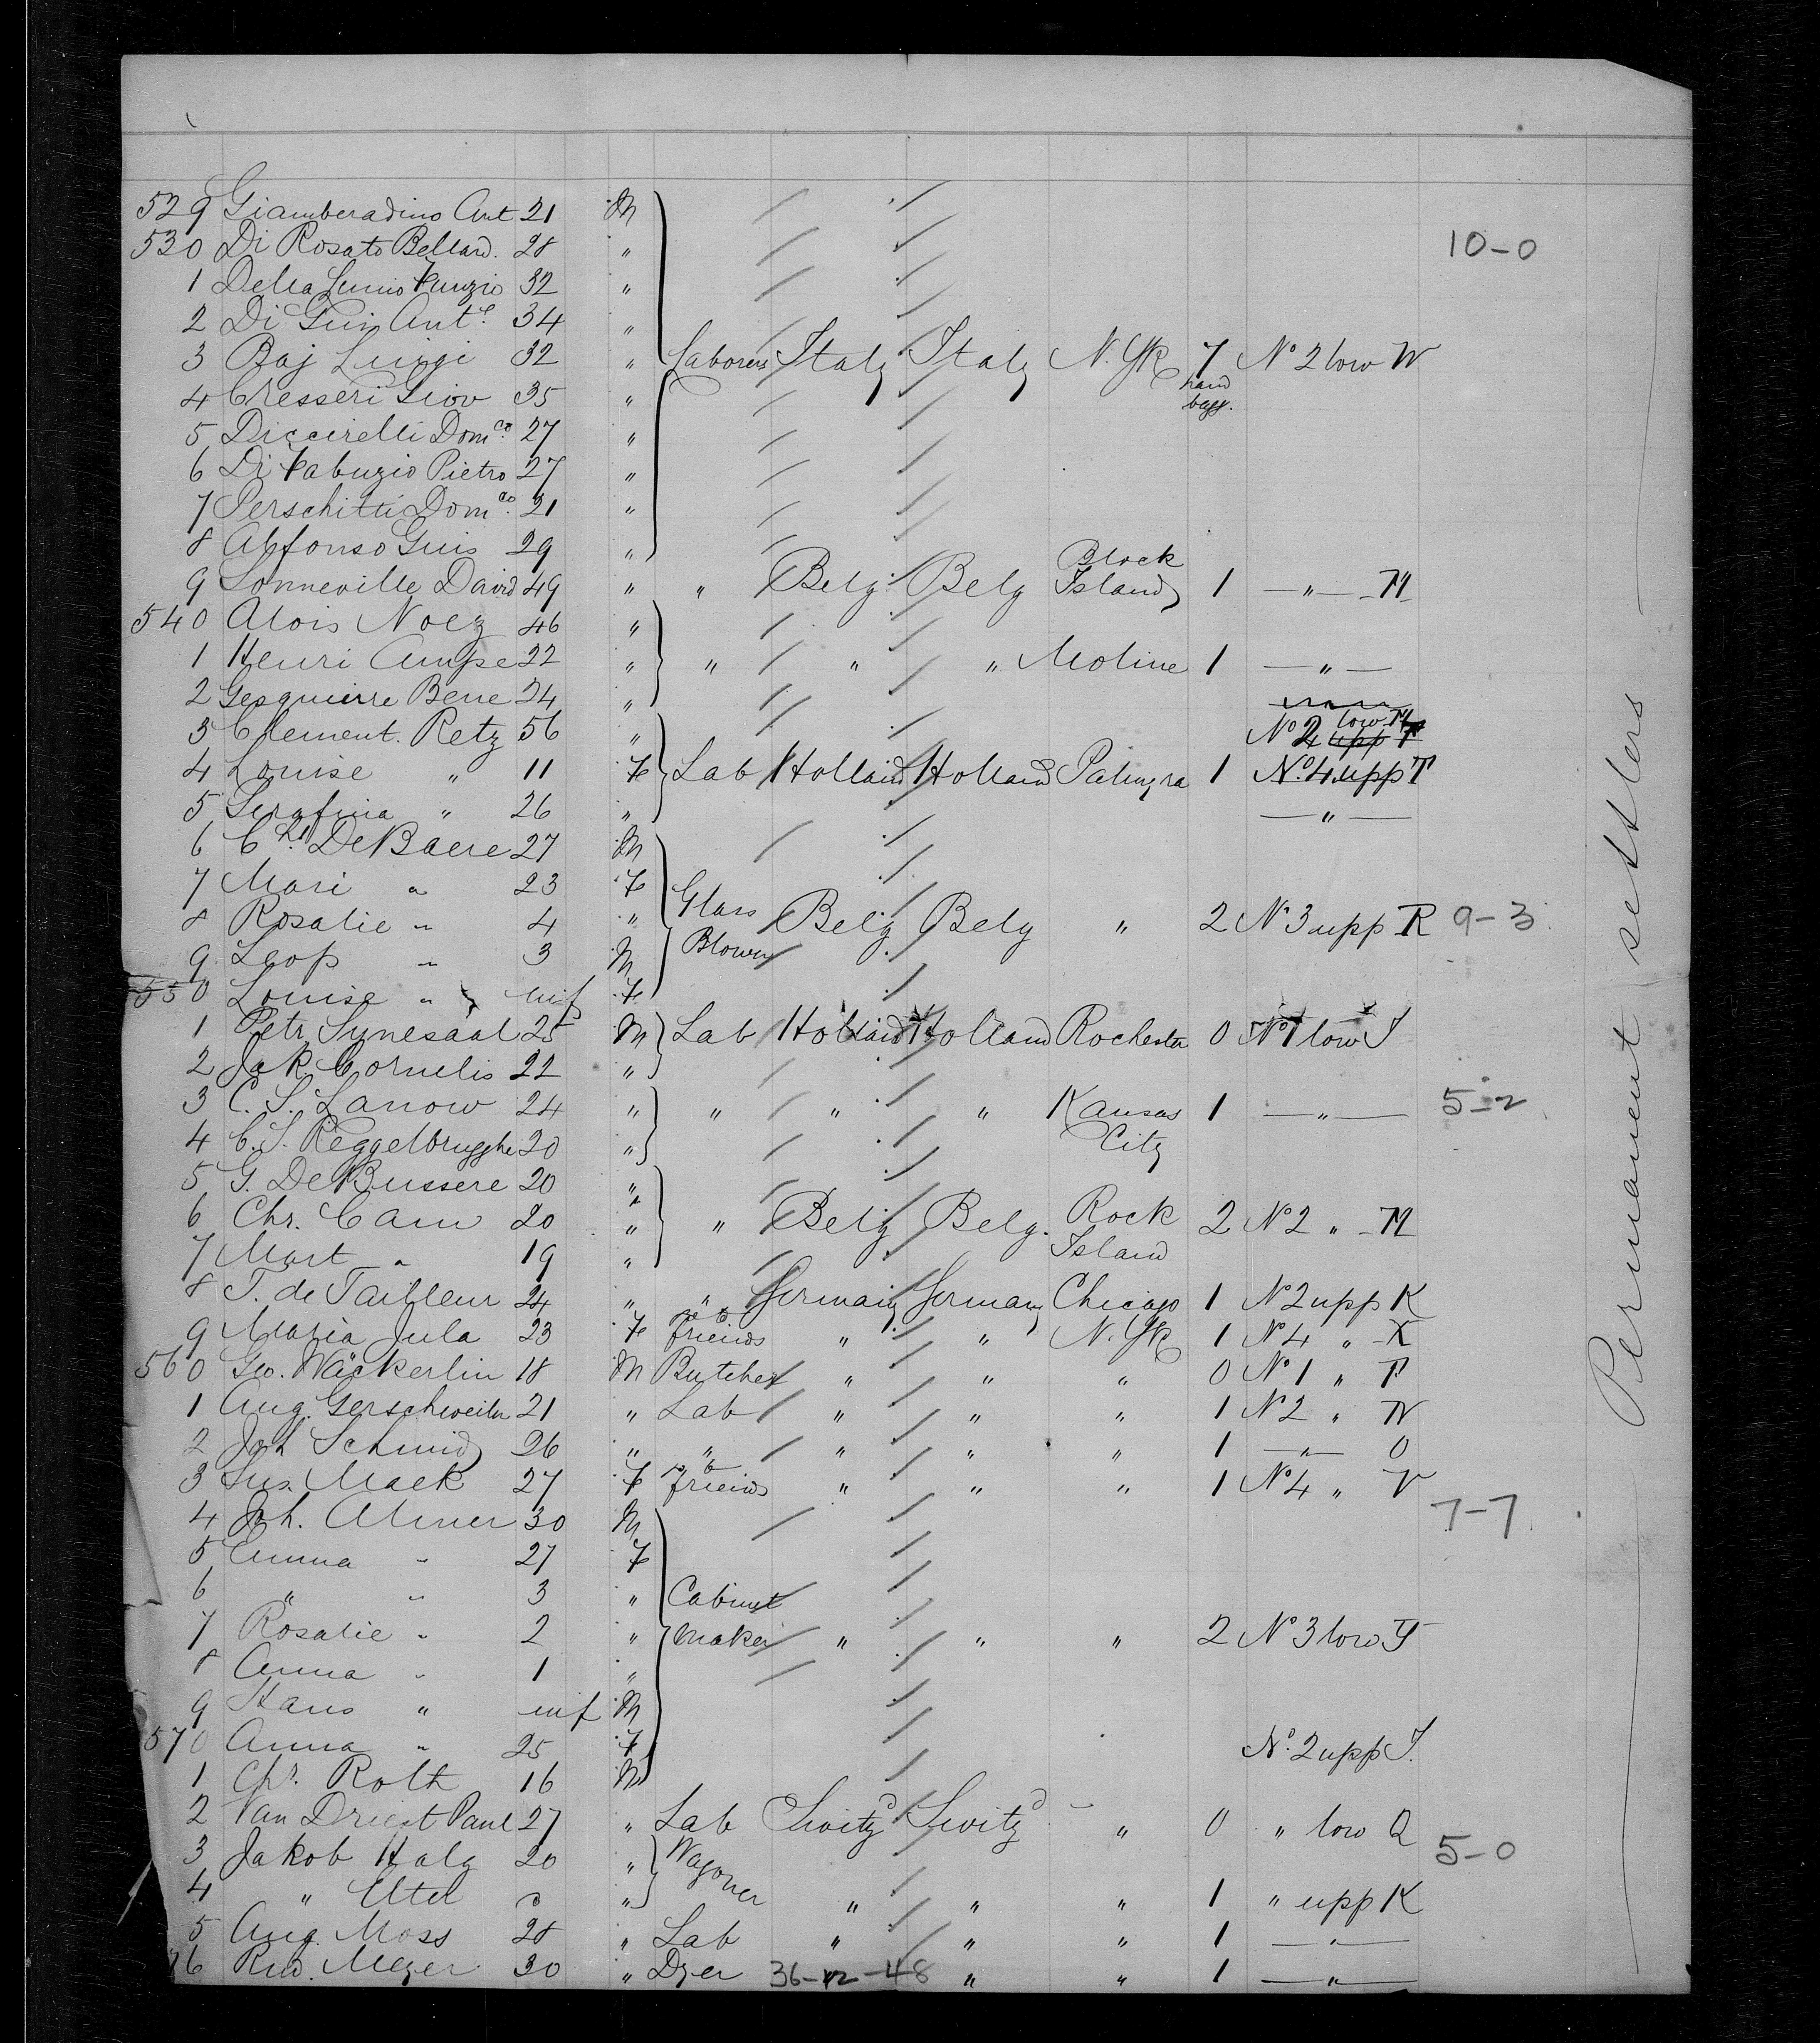 529 Giamberadino Ant 21 M
530 Di Rosato Bellard. 28 " 10-0
1 Della Funzio 32 "
2 Di Guis Ant.º 34 "
3 Baj Luigi 32 " Laborers Italy Italy N. Yk 7 Nº 2 low W
hand bagg.
4 Cresseri Giov 35 "
5 Diccirelli Dom.co 27 "
6 Di Fabuzio Pietro 27 "
7 Perschitti Dom.co 21 "
8 Alfonso Guis 29 "
9 Sonneville David 49 " " Belg Belg Block Island 1 — " — M
540 Alois Noez 46 "
1 Henri Ampe 22 " " " " Moline 1 — " —
2 Gesquierre Bene 24 "
3 Clement. Retz 56 " Nº 2 low M
4 Louise " 11 F Lab Holland Holland Palmyra 1 Nº 4 upp T
5 Serafina " 26 " — " —
6 Chs. DeBaere 27 M
7 Mari " 23 F
8 Rosalie " 4 " Glass Blower Belg Belg " 2 Nº 3 upp R 9-3
9 Leop " 3 M
550 Louise " inf F
1 Petr Synesaal 25 M Lab Holland Holland Rochester 0 Nº 1 low J
2 Jak Cornelis 22 "
3 C. S. Lanow 24 " " " " Kansas City 1 — " — 5-2
4 C. S. Reggelbrugghe 20 "
5 G. DeBussere 20 "
6 Chr. Cam 20 " " Belg Belg. Rock Island 2 Nº 2 " M
7 Mart " 19 "
8 T. de Tailleur 24 " " Germany Germany Chicago 1 Nº 2 upp K
9 Maria Jula 23 F to friends " " N. Yk 1 Nº 4 " X
560 Geo. Wäckerlin 18 M Butcher " " " 0 Nº 1 " P
1 Aug. Gerschweiler 21 " Lab " " " 1 Nº 2 " N
2 Joh Schmid 26 " " " " " 1 — " — O
3 Sus. Maek 27 F to friends " " " 1 Nº 4 " V
4 Joh. Almer 30 M 7-7
5 Emma " 27 F
6 " " 3 " Cabinet
7 Rosalie " 2 " maker " " " 2 Nº 3 low T
8 Anna " 1 "
9 Hans " inf M
570 Anna " 25 F Nº 2 upp J.
1 Chr. Roth 16 M
2 Van Driest Paul 27 " Lab Switzd Switzd " 0 " low Q
3 Jakob Halg 20 " Wagoner 5-0
4 " " " " " 1 " upp K
5 Aug. Moss 28 " Lab " " " 1 — " —
76 Rud. Meyer 30 " Dyer 36-12-48 " " 1 — " —
Permanent settlers